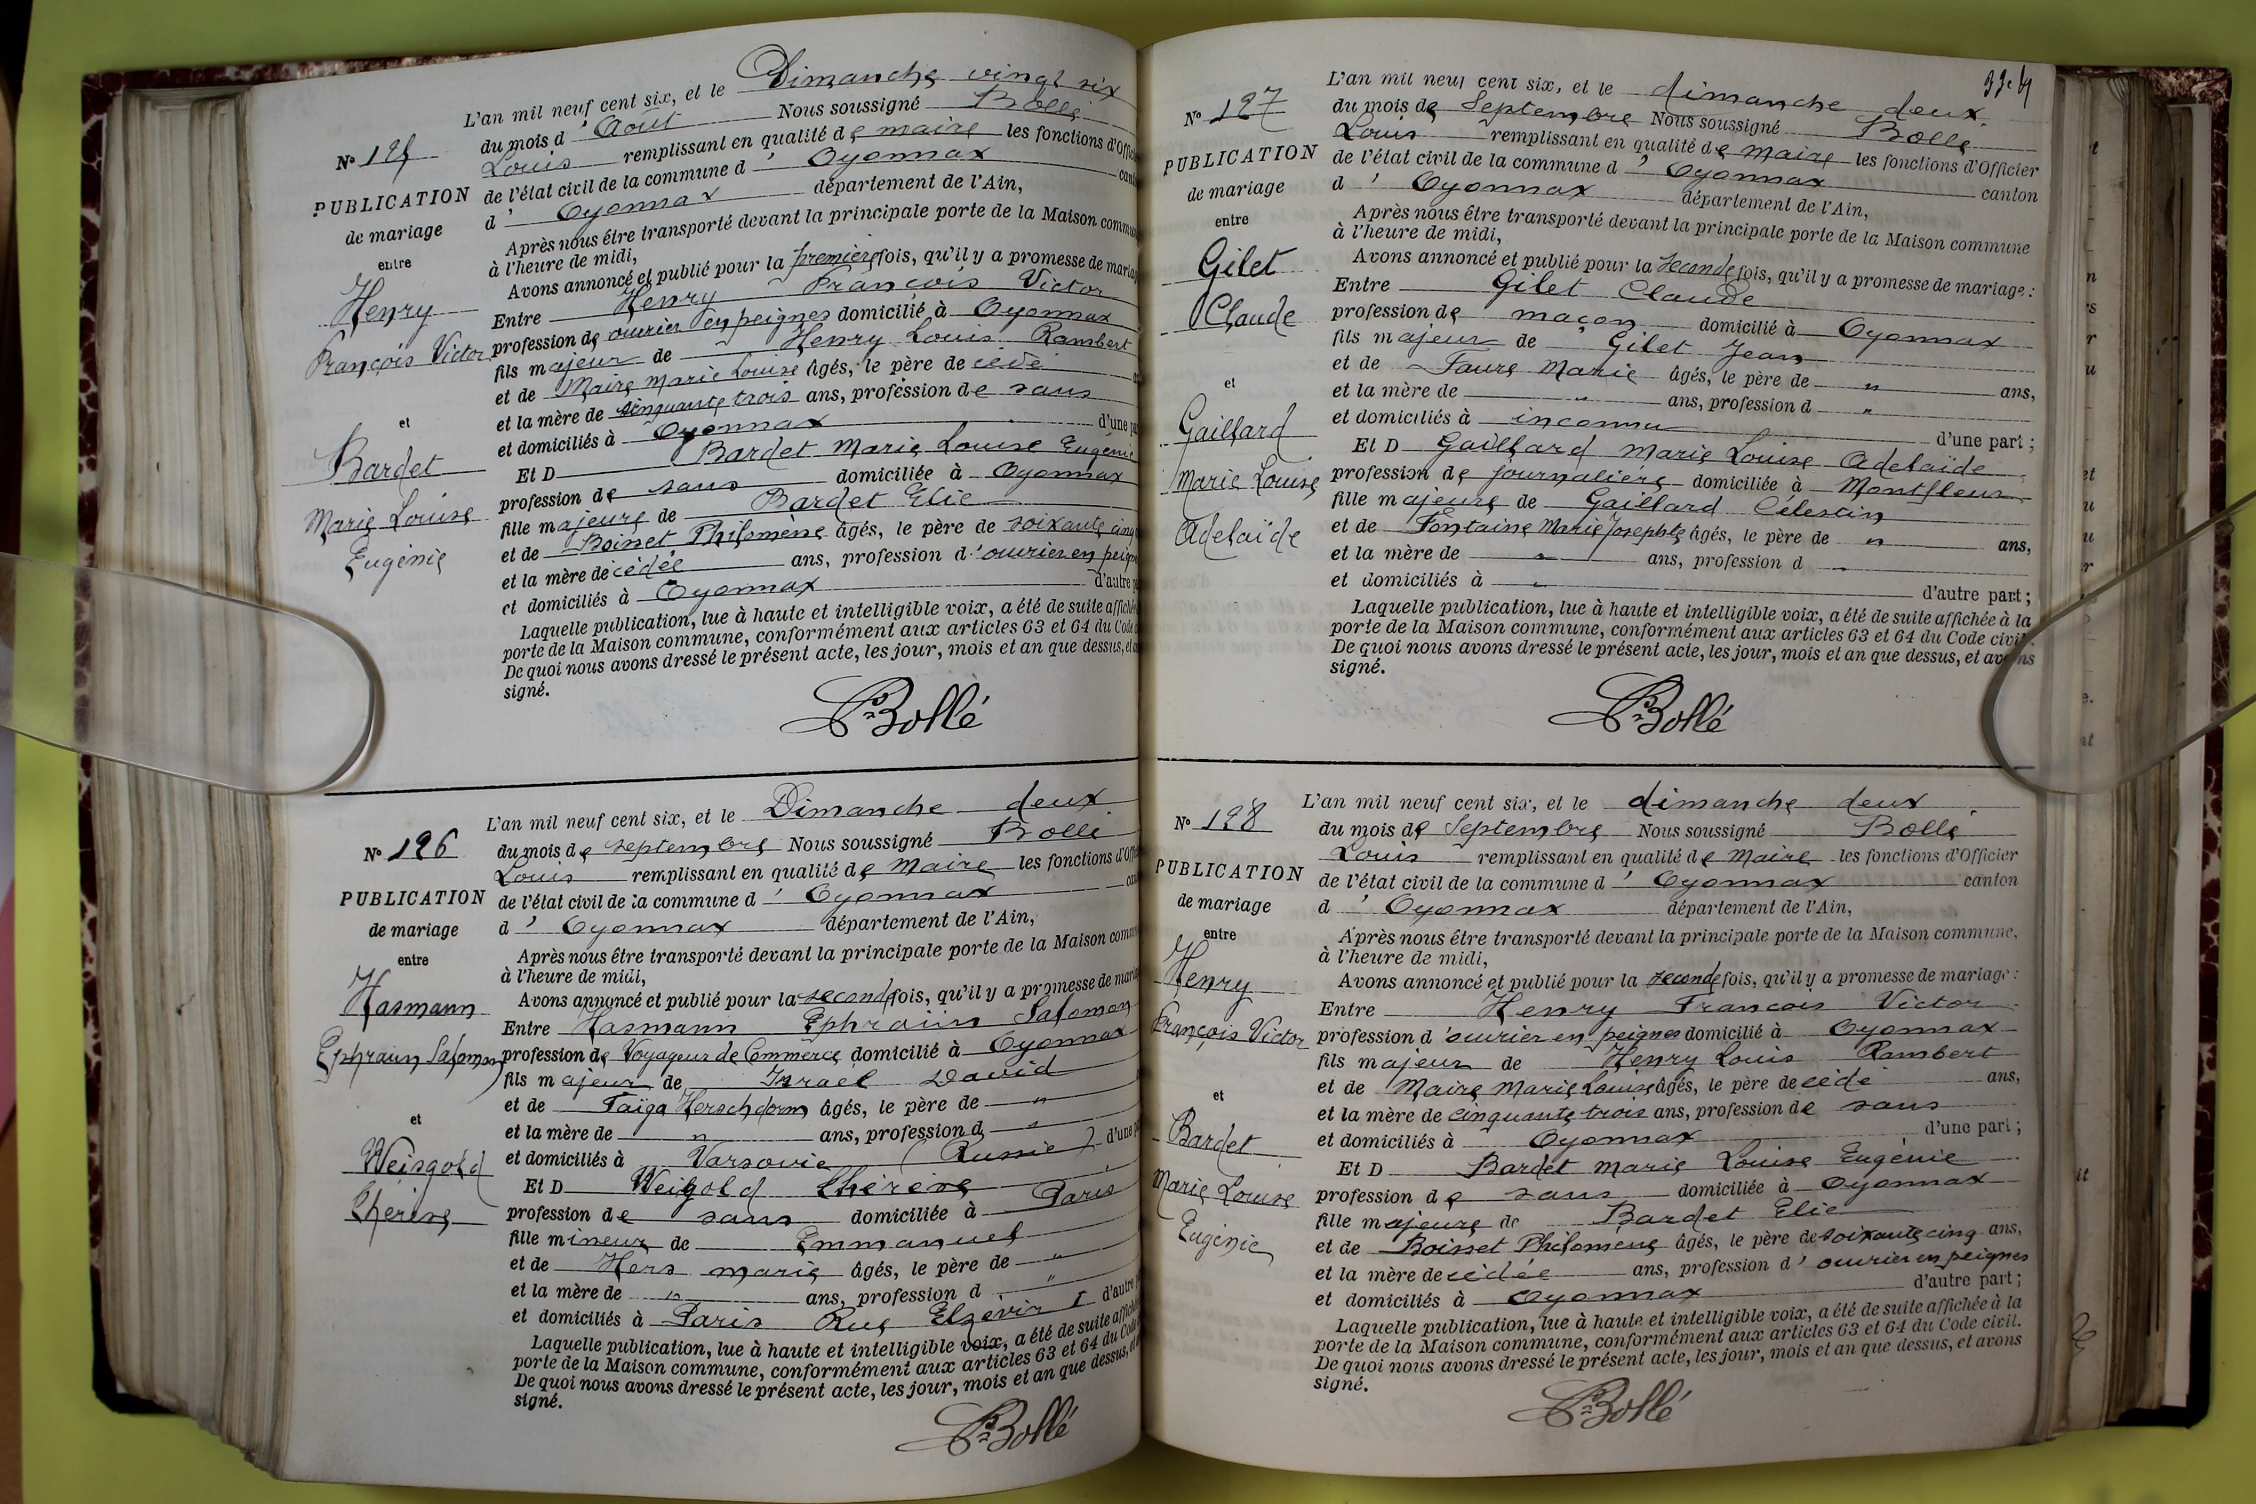 L'an mil neuf cent six, et le Dimanche vingt six
du mois d'Août Nous soussigné Bollé
Louis remplissant en qualité de maire les fonctions d'Offic
de l'état civil de la commune d'Oyonnax cant
d'Oyonnax département de l'Ain,
Après nous être transporté devant la principale porte de la Maison commun
à l'heure de midi,
Avons annoncé et publié pour la première fois, qu'il y a promesse de maria
Entre Henry François Victor
profession de ouvrier en peignes domicilié à Oyonnax
fils majeur de Henry Louis Rambert
et de Maire Marie Louise âgés, le père de cédé
et la mère de cinquante trois ans, profession de sans
et domiciliés à Oyonnax d'une pa
Et D Bardet Marie Louise Eugénie
profession de sans domiciliée à Oyonnax
fille majeure de Bardet Elie
et de Boisset Philomène âgés, le père de soixante cinq
et la mère de cédée ans, profession d'ouvrier en peigne
et domiciliés à Oyonnax d'autre p
Laquelle publication, lue à haute et intelligible voix, a été de suite affichée
porte de la Maison commune, conformément aux articles 63 et 64 du Code
De quoi nous avons dressé le présent acte, les jour, mois et an que dessus, et
signé.
Bollé
PUBLICATION
de mariage
entre
Henry
François Victor
et
Bardet
Marie Louise
Eugénie
L'an mil neuf cent six, et le Dimanche deux
du mois de septembre Nous soussigné Bollé
Louis remplissant en qualité de Maire les fonctions d'Off
de l'état civil de la commune d'Oyonnax
d'Oyonnax département de l'Ain,
Après nous être transporté devant la principale porte de la Maison comm
à l'heure de midi,
Avons annoncé et publié pour la seconde fois, qu'il y a promesse de maria
Entre Hasmann Ephraïm Salomon
profession de Voyageur de Commerce domicilié à Oyonnax
fils majeur de Israel David
et de Taïga Herschdorn âgés, le père de "
et la mère de " ans, profession d "
et domiciliés à Varsovie (Russie) d'une
Et D Weisgold Thérèse
profession de sans domiciliée à Paris
fille mineur de Emmanuel
et de Hers marie âgés, le père de "
et la mère de " ans, profession d "
et domiciliés à Paris Rue Elzévir 1 d'autre
Laquelle publication, lue à haute et intelligible voix, a été de suite affich
porte de la Maison commune, conformément aux articles 63 et 64 du Code
De quoi nous avons dressé le présent acte, les jour, mois et an que dessus, et
signé.
Bollé
N° 126
PUBLICATION
de mariage
entre
Hasmann
Ephraim Salomon
et
Weisgold
Thérèse
L'an mil neuf cent six, et le dimanche deux
du mois de Septembre Nous soussigné Bollé
Louis remplissant en qualité de maire les fonctions d'Officier
de l'état civil de la commune d'Oyonnax canton
d'Oyonnax département de l'Ain,
Après nous être transporté devant la principale porte de la Maison commune
à l'heure de midi,
Avons annoncé et publié pour la seconde fois, qu'il y a promesse de mariage :
Entre Gilet Claude
profession de maçon domicilié à Oyonnax
fils majeur de Gilet Jean
et de Faure Marie âgés, le père de " ans,
et la mère de " ans, profession d "
et domiciliés à inconnu d'une part ;
Et D Gaillard Marie Louise Adelaïde
profession de journalière domiciliée à Montfleur
fille majeure de Gaillard Célestin
et de Fontaine Marie Josephte âgés, le père de " ans,
et la mère de " ans, profession d "
et domiciliés à " d'autre part ;
Laquelle publication, lue à haute et intelligible voix, a été de suite affichée à la
porte de la Maison commune, conformément aux articles 63 et 64 du Code civil.
De quoi nous avons dressé le présent acte, les jour, mois et an que dessus, et avons
signé.
Bollé
N° 127
PUBLICATION
de mariage
entre
Gilet
Claude
et
Gaillard
Marie Louise
Adelaïde
L'an mil neuf cent six, et le dimanche deux
du mois de Septembre Nous soussigné Bollé
Louis remplissant en qualité de Maire les fonctions d'Officier
de l'état civil de la commune d'Oyonnax canton
d'Oyonnax département de l'Ain,
Après nous être transporté devant la principale porte de la Maison commune,
à l'heure de midi,
Avons annoncé et publié pour la seconde fois, qu'il y a promesse de mariage :
Entre Henry François Victor
profession d'ouvrier en peignes domicilié à Oyonnax
fils majeur de Henry Louis Rambert
et de Maire Marie Louise âgés, le père de cédé ans,
et la mère de cinquante trois ans, profession de sans
et domiciliés à Oyonnax d'une part ;
Et D Bardet Marie Louise Eugénie
profession de sans domiciliée à Oyonnax
fille majeure de Bardet Elie
et de Boisset Philomène âgés, le père de soixante cinq ans,
et la mère de cédée ans, profession d'ouvrier en peignes
et domiciliés à Oyonnax d'autre part ;
Laquelle publication, lue à haute et intelligible voix, a été de suite affichée à la
porte de la Maison commune, conformément aux articles 63 et 64 du Code civil.
De quoi nous avons dressé le présent acte, les jour, mois et an que dessus, et avons
signé.
Bollé
N° 128
PUBLICATION
de mariage
entre
Henry
François Victor
et
Bardet
Marie Louise
Eugénie